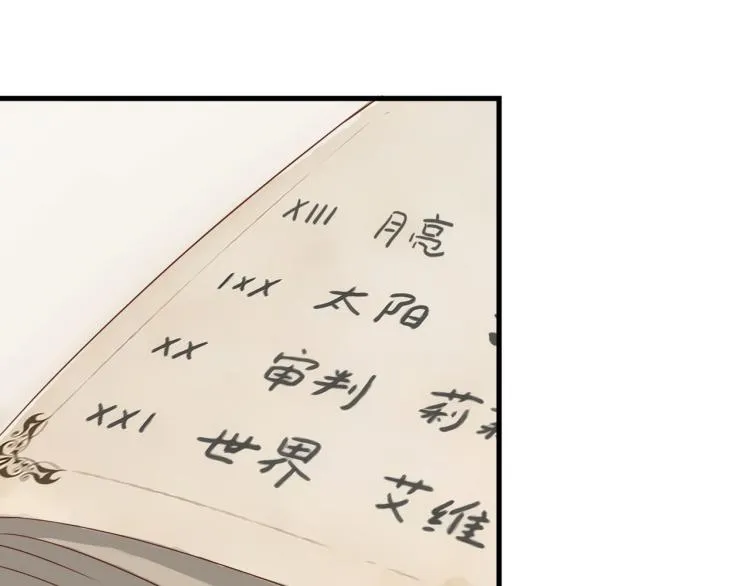 XIII 月亮
IXX 太阳
XX 审判 莉
XXI 世界 艾维